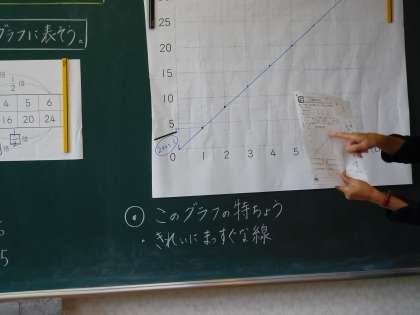 グラフに表そう。
倍
1/2倍
4 5 6
16 20 24
倍
25
20
15
10
5
0 1 2 3 4 5
5
◎ このグラフの特ちょう
・きれいにまっすぐな線